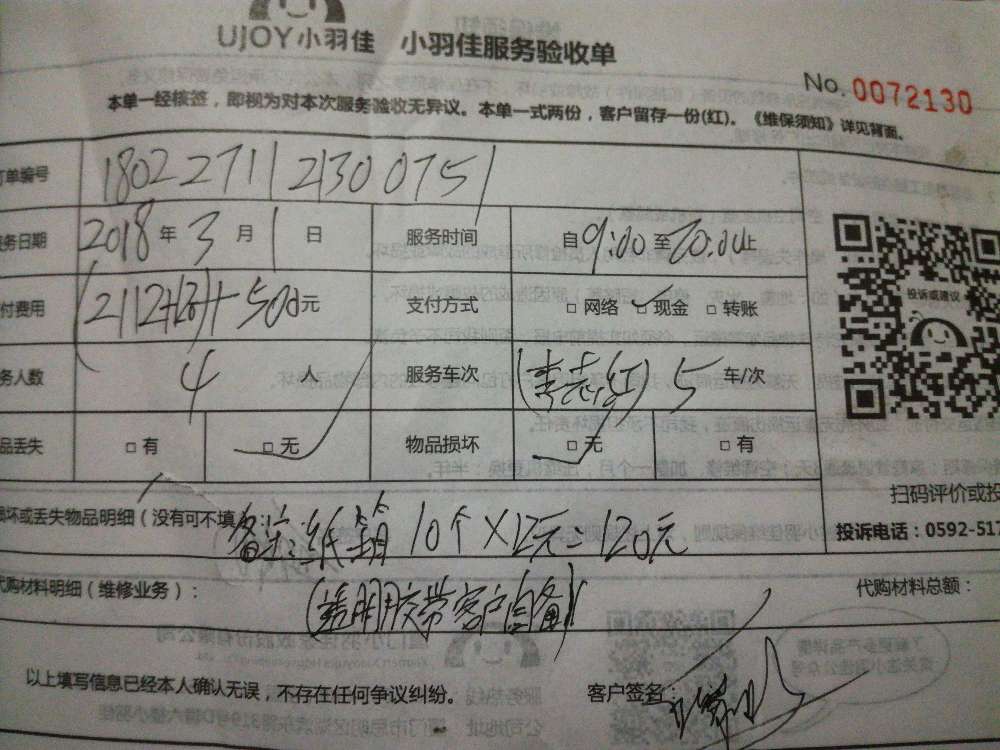 UJOY小羽佳 小羽佳服务验收单
No. 0072130
本单一经核签，即视为对本次服务验收无异议。本单一式两份，客户留存一份(红)。《维保须知》详见背面。
订单编号 180227112130 0751
服务日期 2018年3月1日 服务时间 自9:00至20:00止
付费用 元 支付方式 □网络 □现金 □转账
务人数 4人 服务车次 (李志红) 5 车/次
品丢失 □有 □无 物品损坏 □无 □有
投诉或建议
扫码评价或投
损坏或丢失物品明细（没有可不填）： 备注：纸箱10个×12元=120元
投诉电话：0592-517
代购材料明细（维修业务）： (透明胶带客户自备) 代购材料总额：
以上填写信息已经本人确认无误，不存在任何争议纠纷。 客户签名：